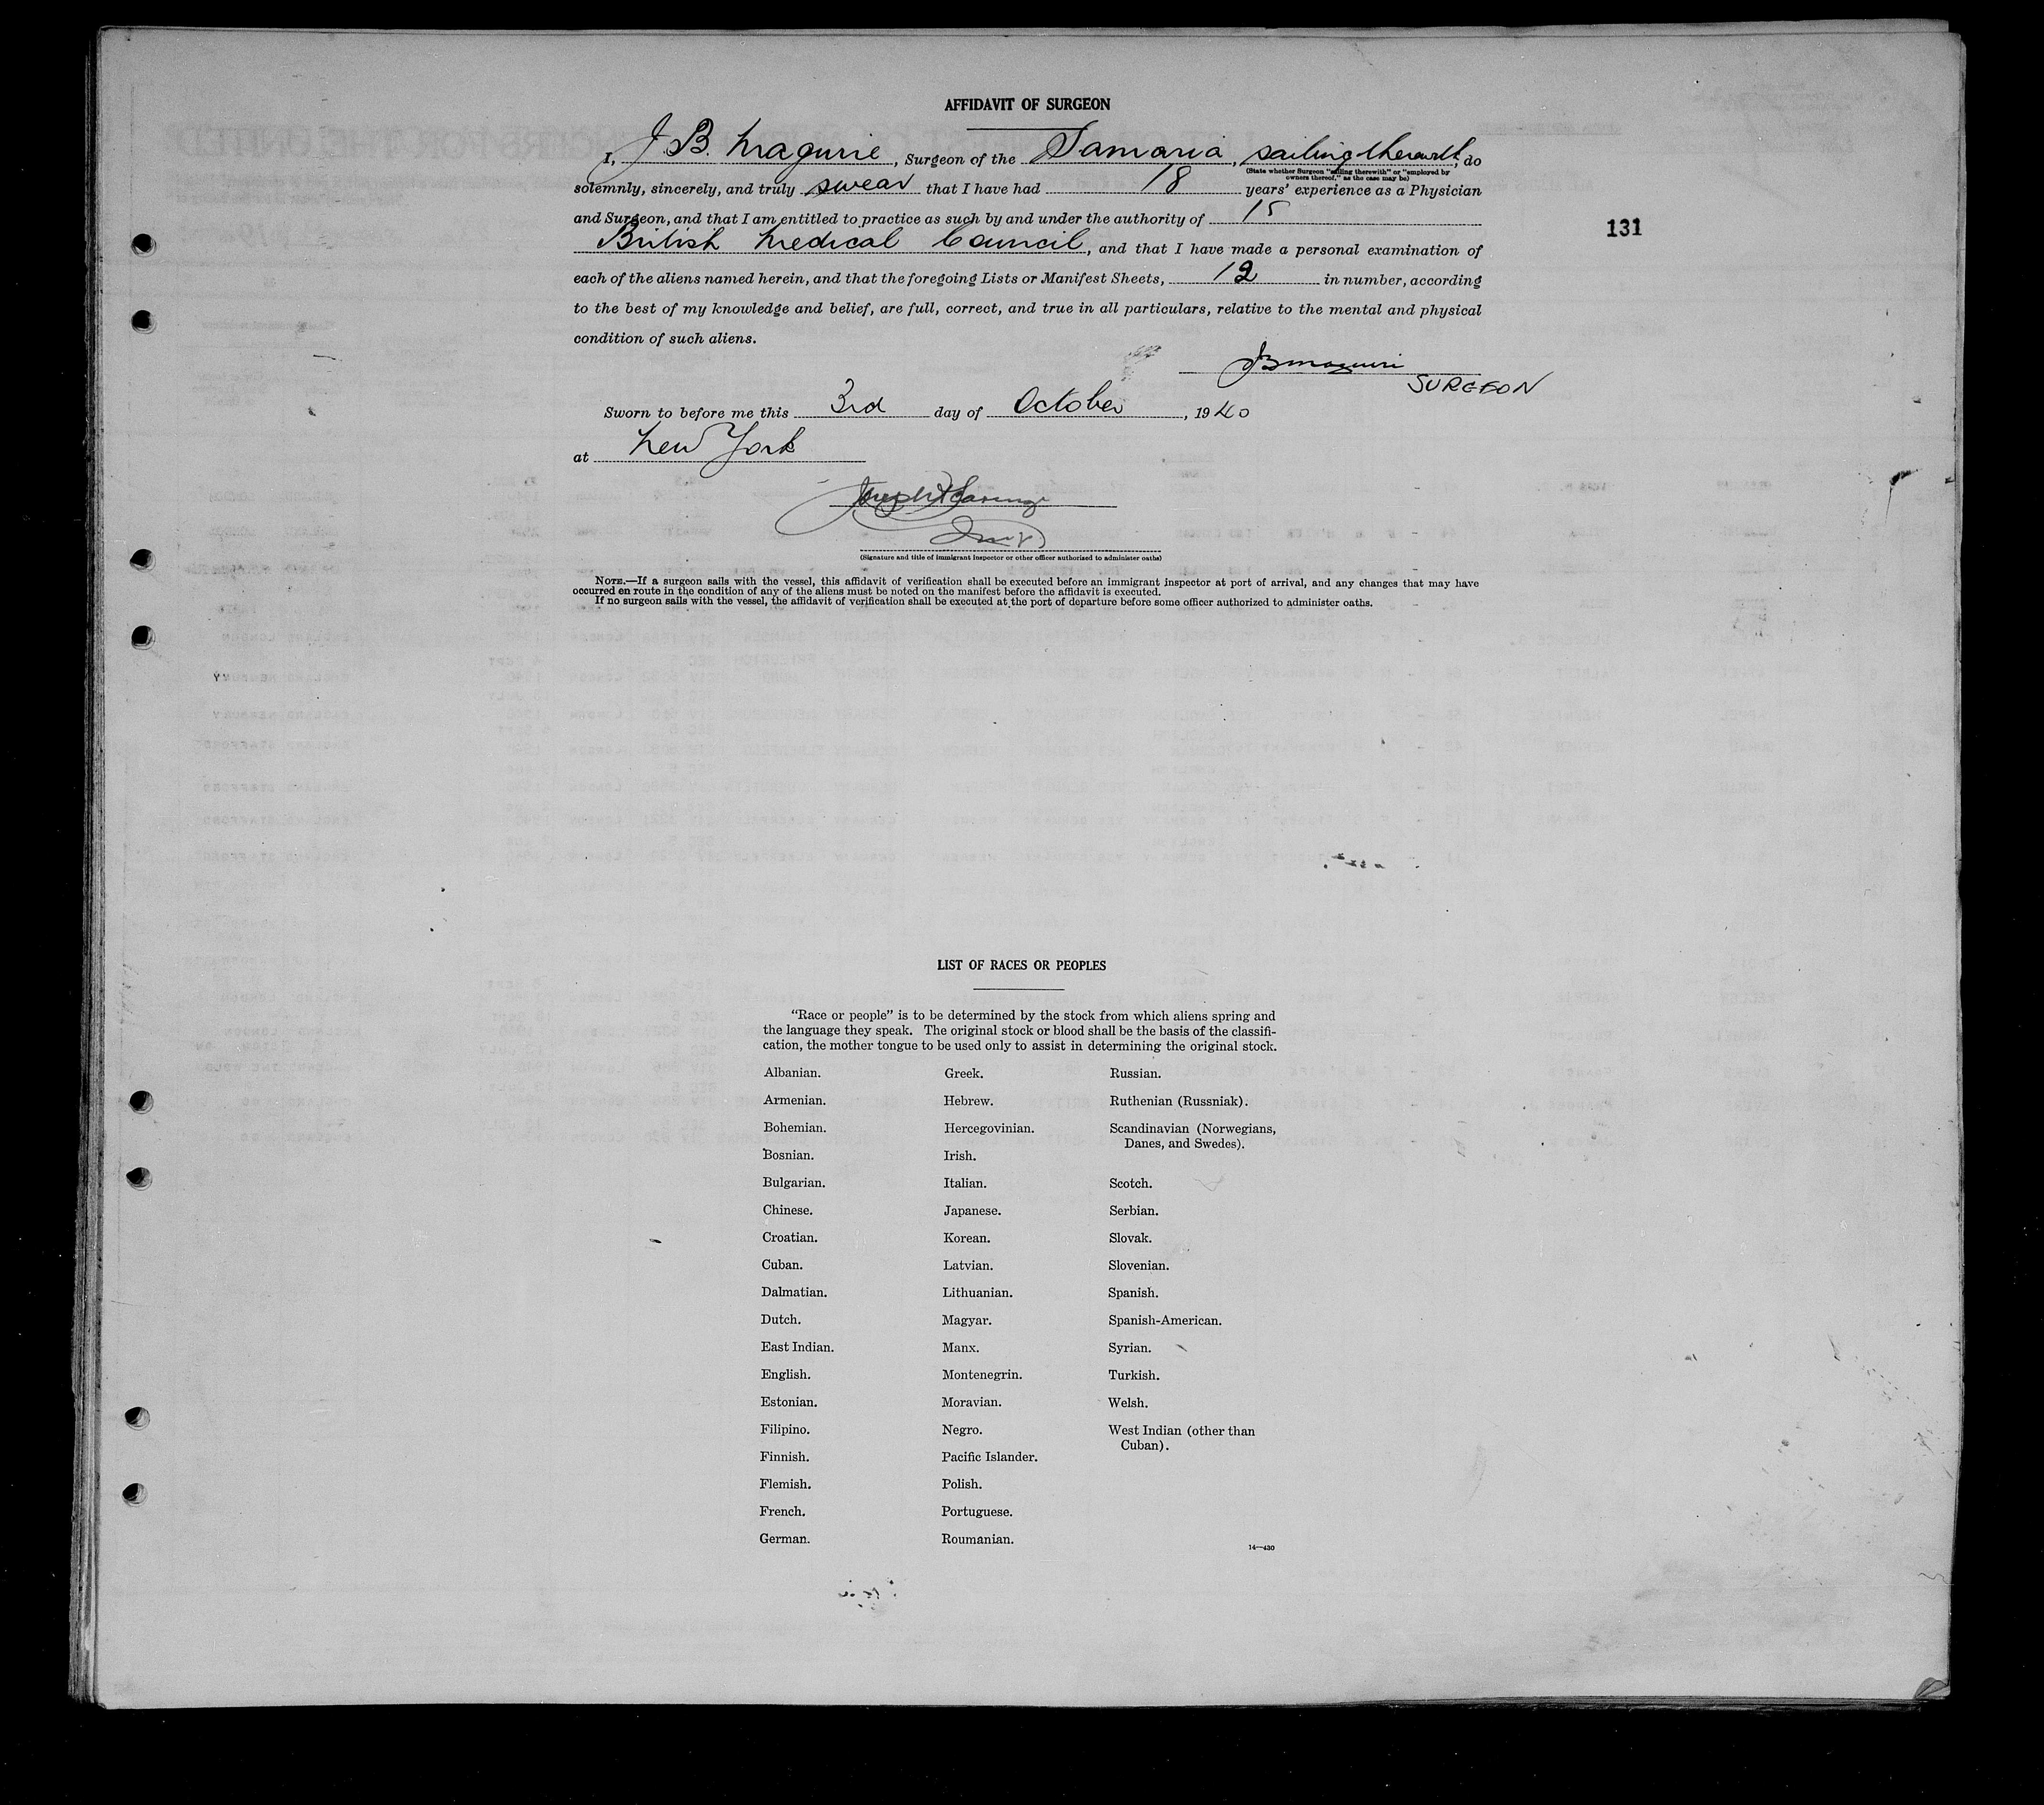 AFFIDAVIT OF SURGEON
I, J. B. Maguire, Surgeon of the Samaria, sailing therewith, do
(State whether Surgeon "sailing therewith" or "employed by
owners thereof," as the case may be)
solemnly, sincerely, and truly swear that I have had 18 years' experience as a Physician
and Surgeon, and that I am entitled to practice as such by and under the authority of 15
131
British Medical Council, and that I have made a personal examination of
each of the aliens named herein, and that the foregoing Lists or Manifest Sheets, 12 in number, according
to the best of my knowledge and belief, are full, correct, and true in all particulars, relative to the mental and physical
condition of such aliens.
J B Maguire
SURGEON
Sworn to before me this 3rd day of October, 1940
at New York
Joseph
(Signature and title of immigrant inspector or other officer authorized to administer oaths)
NOTE.—If a surgeon sails with the vessel, this affidavit of verification shall be executed before an immigrant inspector at port of arrival, and any changes that may have
occurred en route in the condition of any of the aliens must be noted on the manifest before the affidavit is executed.
If no surgeon sails with the vessel, the affidavit of verification shall be executed at the port of departure before some officer authorized to administer oaths.
LIST OF RACES OR PEOPLES
"Race or people" is to be determined by the stock from which aliens spring and
the language they speak. The original stock or blood shall be the basis of the classifi-
cation, the mother tongue to be used only to assist in determining the original stock.
Albanian.
Armenian.
Bohemian.
Bosnian.
Bulgarian.
Chinese.
Croatian.
Cuban.
Dalmatian.
Dutch.
East Indian.
English.
Estonian.
Filipino.
Finnish.
Flemish.
French.
German.
Greek.
Hebrew.
Hercegovinian.
Irish.
Italian.
Japanese.
Korean.
Latvian.
Lithuanian.
Magyar.
Manx.
Montenegrin.
Moravian.
Negro.
Pacific Islander.
Polish.
Portuguese.
Roumanian.
Russian.
Ruthenian (Russniak).
Scandinavian (Norwegians,
Danes, and Swedes).
Scotch.
Serbian.
Slovak.
Slovenian.
Spanish.
Spanish-American.
Syrian.
Turkish.
Welsh.
West Indian (other than
Cuban).
14—430